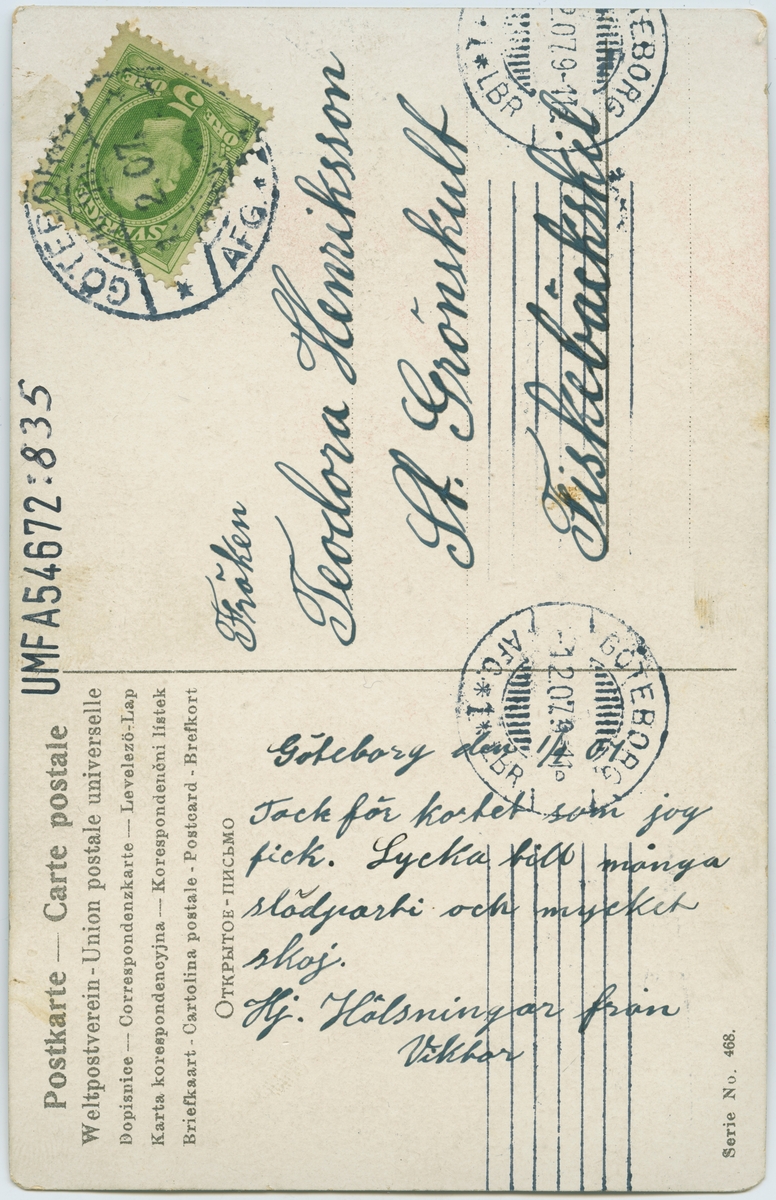 UMFA54672:835
Postkarte — Carte postale
Weltpostverein - Union postale universelle
Dopisnice — Correspondenzkarte — Levelező-Lap
Karta korespondencyjna — Korespondenčni lístek
Briefkaart - Cartolina postale - Postcard - Brefkort
ОТКРЫТОЕ-ПИСЬМО
Göteborg den 1/2 07
Tack för kortet som jag
fick. Lycka till många
slädparti och mycket
skoj.
Hj. Hälsningar från
Viktor
Serie No. 468.
Fröken
Teodora Henriksson
St. Grönskult
Fiskebäckskil
5
ÖRE
SVERIGE
GÖTEBORG
2.07
AFG.
GÖTEBORG
1.2.07.9-11
AFG. 1 LBR
GÖTEBORG
2.07.9-11
1 LBR